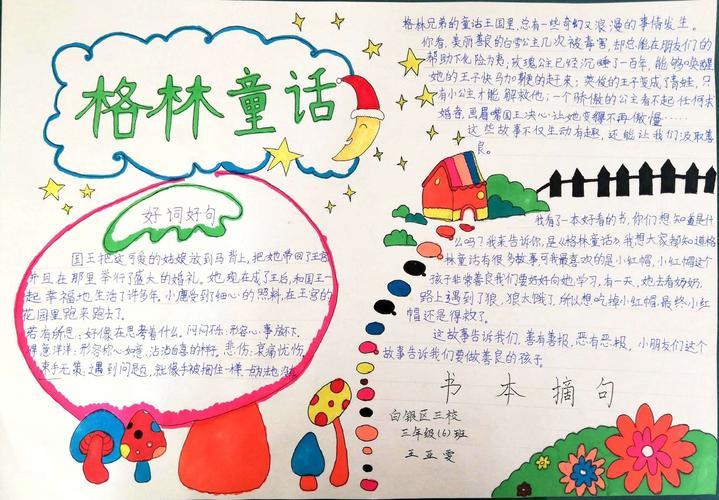 格林童话
格林兄弟的童话王国里,总有一些奇幻又浪漫的事情发生。
你看,美丽善良的白雪公主几次被毒害,却总能在朋友们的
帮助下化险为夷;玫瑰公主已经沉睡了一百年,能够唤醒
她的王子快马加鞭的赶来;英俊的王子变成了青蛙,只
有小公主才能解救他;一个骄傲的公主看不起任何求
婚者,画眉嘴国王决心让她变得不再傲慢……
这些故事不仅生动有趣,还能让我们汲取善
良。
好词好句
国王把这可爱的姑娘放到马背上,把她带回了王宫
并且在那里举行了盛大的婚礼。她现在成了王后,和国王一
起幸福地生活了许多年。小鹿受到了细心的照料,在王宫的
花园里跑来跑去了。
若有所思:好像在思考着什么。闷闷不乐:形容心事放不下。
得意洋洋:形容称心如意,沾沾自喜的样子。悲伤:哀痛忧伤
束手无策:遇到问题,就像手被捆住一样一
我有了一本好看的书,你们想知道是什
么吗?我来告诉你,是《格林童话》我想大家都知道格
林童话有很多故事可我最喜欢的是小红帽,小红帽这个
孩子非常善良我们要好好向她学习,有一天,她去看奶奶,
路上遇到了狼,狼太饿了,所以想吃掉小红帽,最终小红
帽还是得救了。
这故事告诉我们,善有善报,恶有恶报,小朋友们这个
故事告诉我们要做善良的孩子。
书本摘句
白银区三校
三年级(6)班
王亚雯